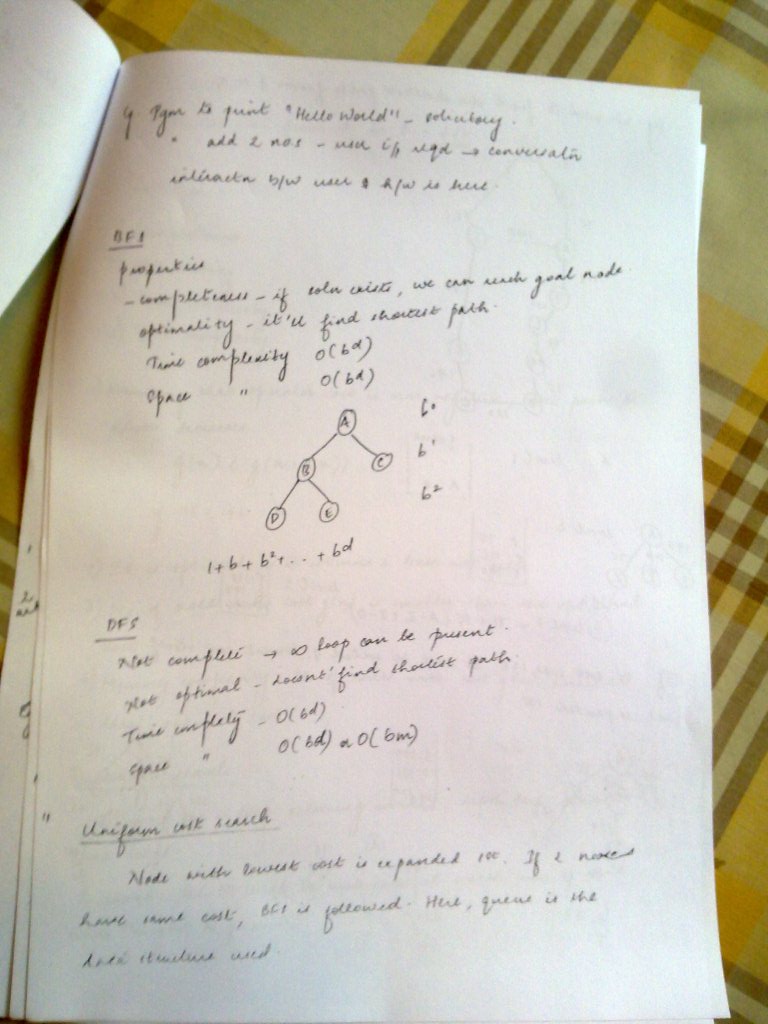 eg Pgm to print "Hello World" - solicitary.
" add 2 nos - user i/p reqd → conversatn
interactn b/w user & h/w is here.
BFS
properties
- completeness - if soln exists, we can reach goal node.
optimality - it'll find shortest path.
Time complexity O(b^d)
Space " O(b^d)
A b⁰
B C b¹
D E b²
1 + b + b² + ... + b^d
DFS
Not complete → ∞ loop can be present.
Not optimal - doesnt' find shortest path.
Time complety - O(b^d)
Space " O(bd) or O(bm)
" Uniform cost search
Node with lowest cost is expanded 1st. If 2 nodes
have same cost, BFS is followed. Here, queue is the
data structure used.